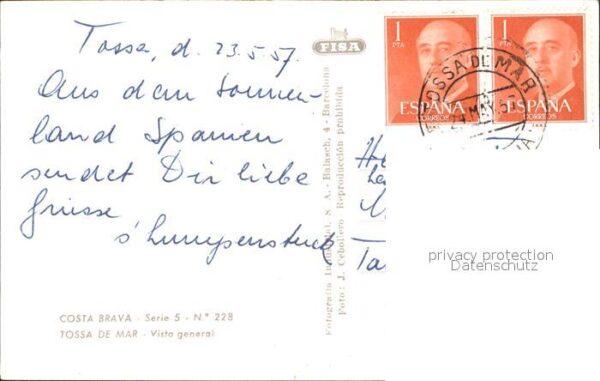 Tossa, d. 23.5.57.
Aus dem Sonnen-
land Spanien
sendet Dir liebe
Grüsse
s'Lumpenstuck
COSTA BRAVA - Serie 5 - N.º 228
TOSSA DE MAR - Vista general
FISA
Fotografía Industrial, S. A. - Balasch, 4 - Barcelona
Foto: J. Cebollero - Reproducción prohibida
1 PTA
ESPAÑA
CORREOS
1 PTA
ESPAÑA
CORREOS
TOSSA DE MAR
24 MAY. 57
privacy protection
Datenschutz